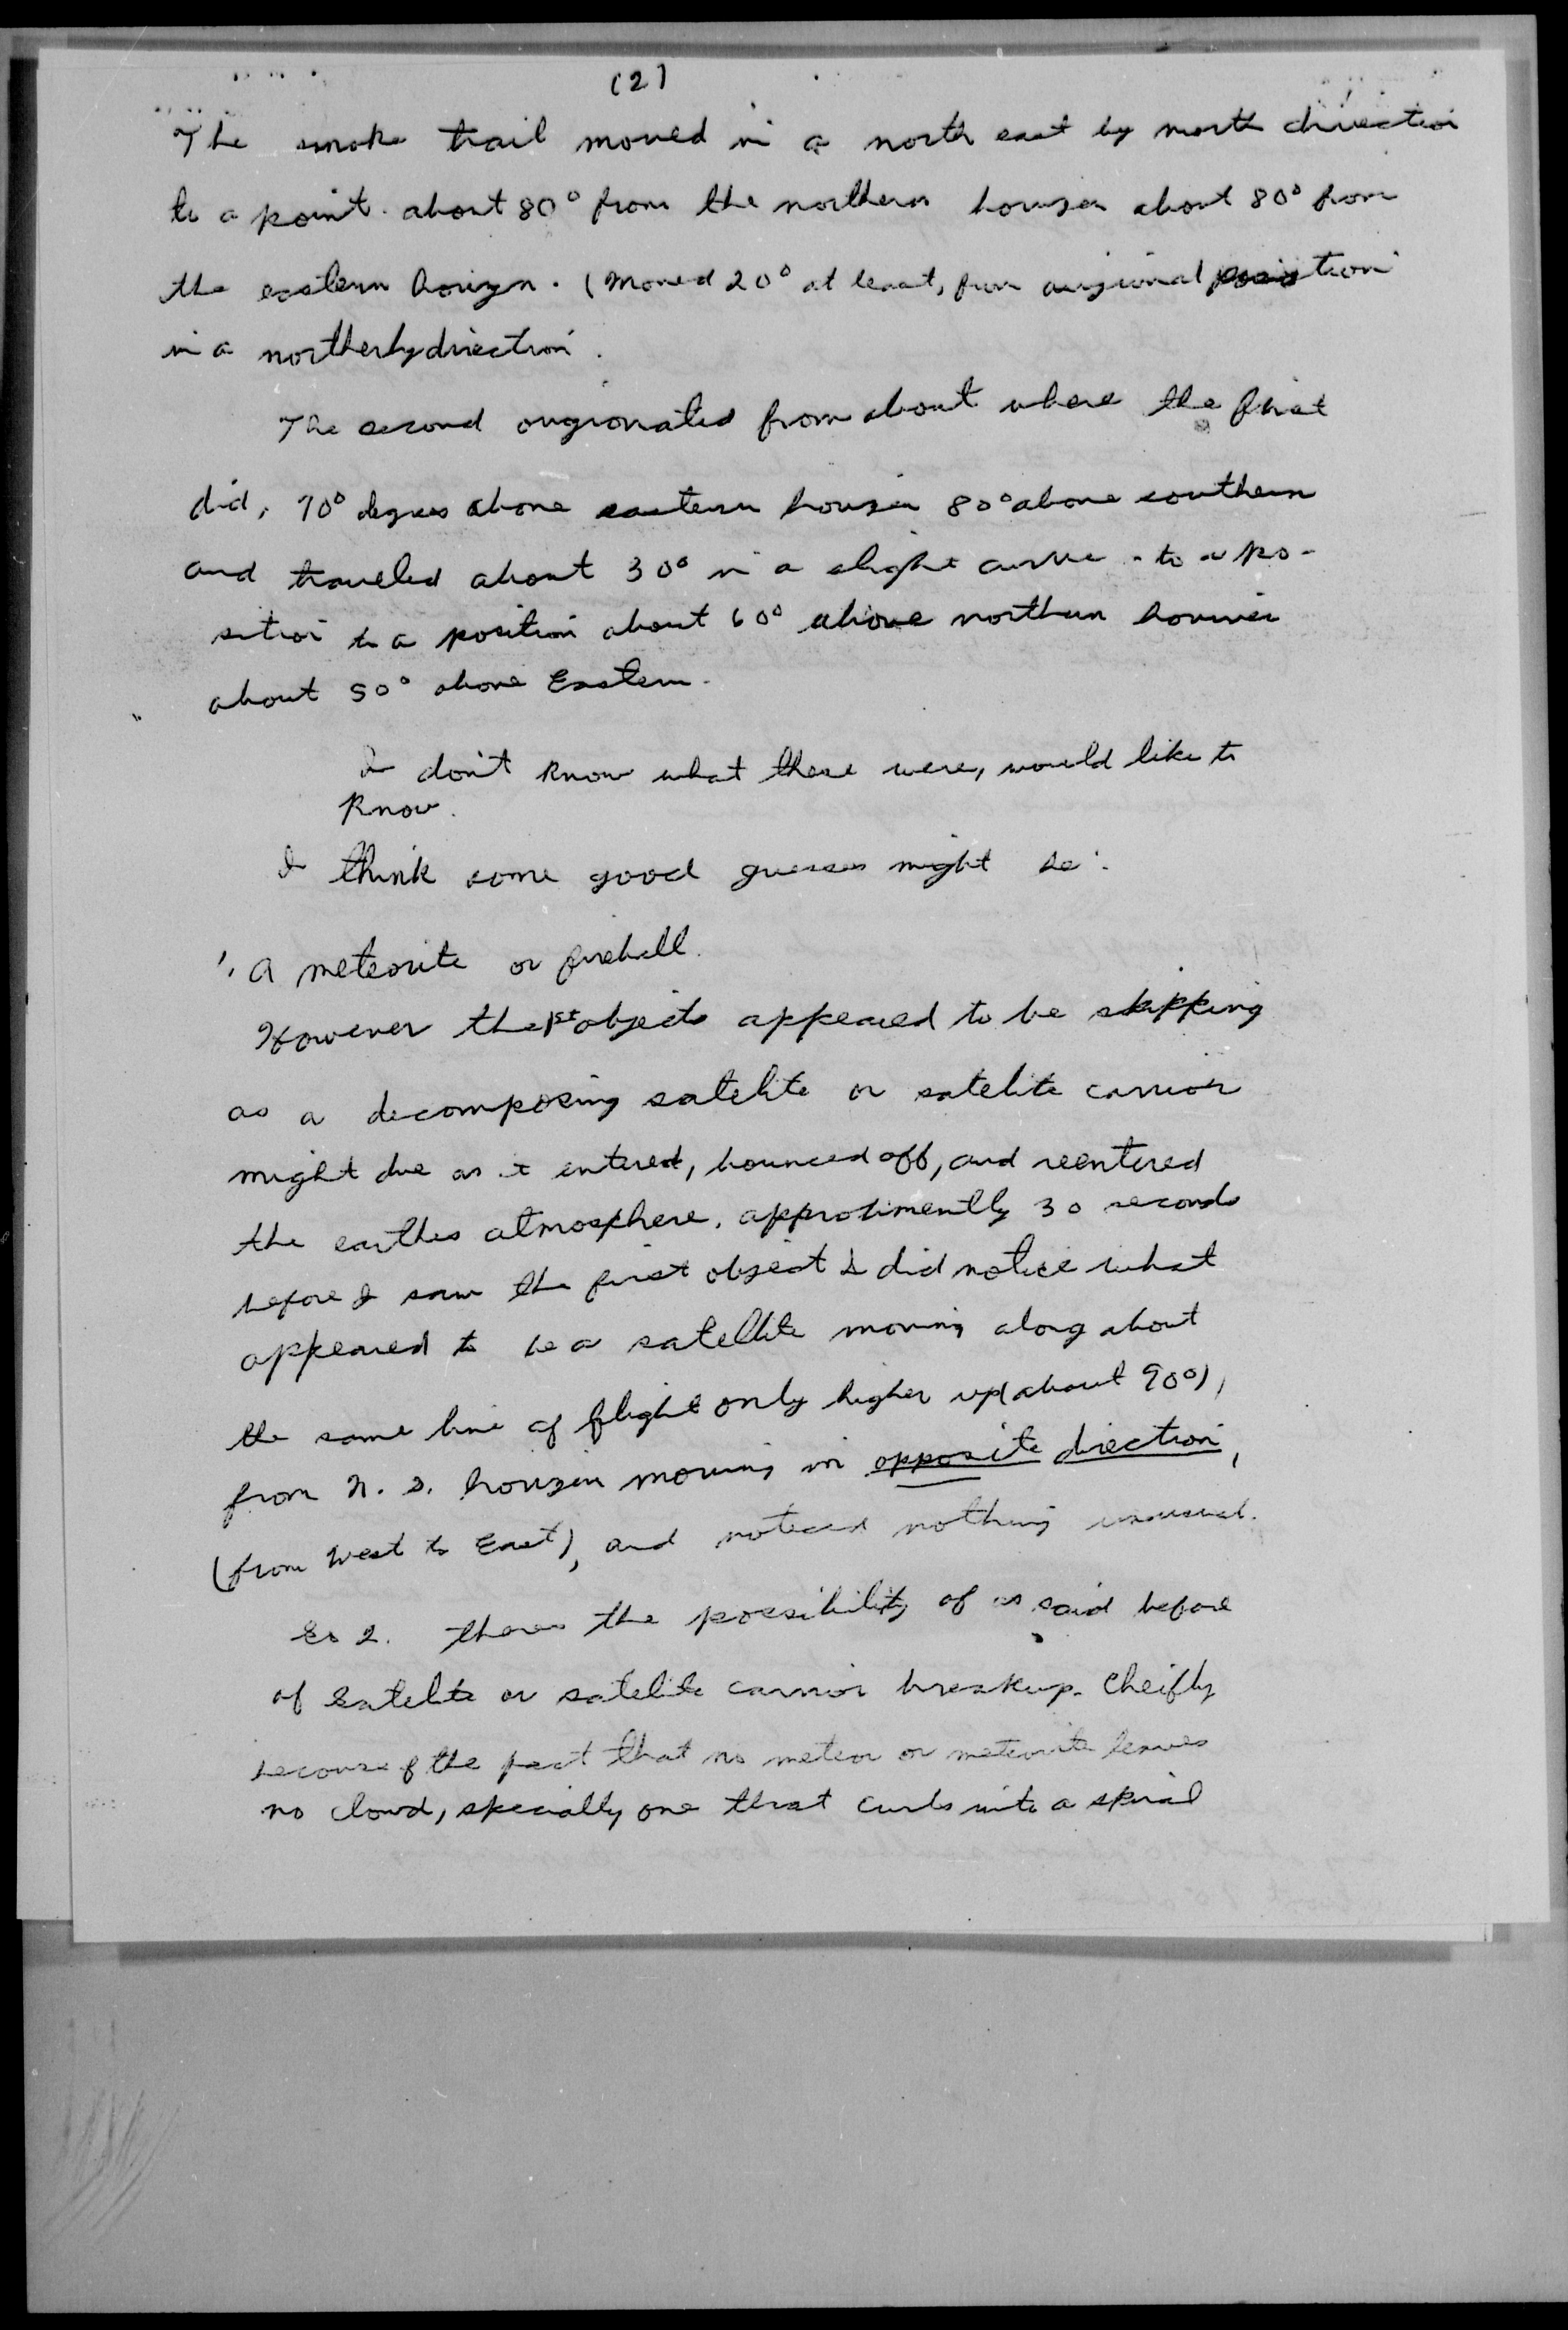 (2)
The smoke trail moved in a north east by north direction
to a point. about 80° from the northern horizon about 80° from
the eastern horizon. (Moved 20° at least, from origional position
in a northerly direction.
The second origionated from about where the first
did, 70° degrees above eastern horizon 80° above southern
and traveled about 30° in a slight curve - to a po-
sition to a position about 60° above northern horizon
about 50° above Eastern.
I don't know what these were, would like to
know.
I think some good guesses might be:
1. A meteorite or fireball.
However the 1st objects appeared to be skipping
as a decomposing satelite or satelite carrior
might due as it entered, bounced off, and reentered
the earthes atmosphere. approximently 30 seconds
before I saw the first object I did notice what
appeared to be a satellite moving along about
the same line of flight only higher up (about 90°),
from N. S. horizon moving in opposite direction,
(from West to East), and noticed nothing unusual.
2. theres the possibility of as said before
of satelite or satelite carrior breakup. Cheifly
because of the fact that no meteor or meteorite leaves
no cloud, specially one that curls into a spiral